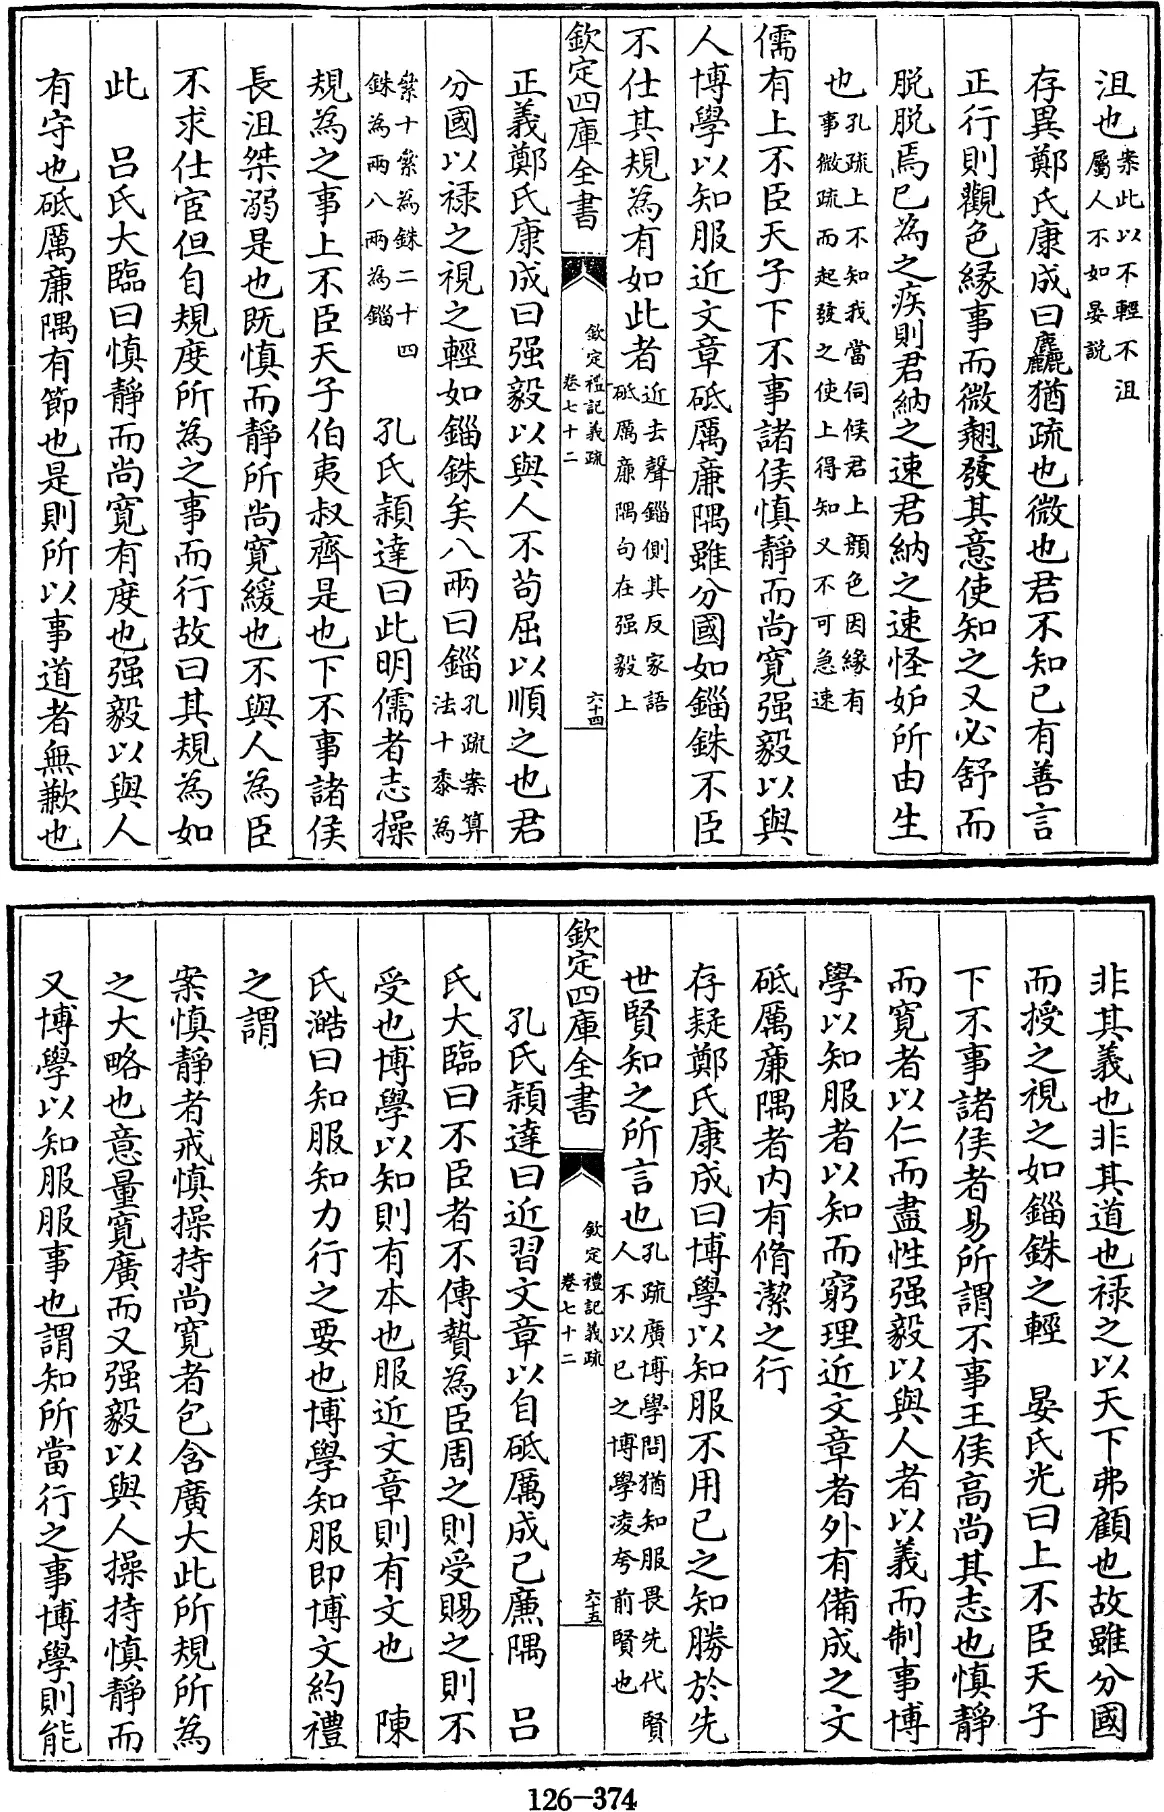 沮也案此以不輕不沮屬人不如晏説
存異鄭氏康成曰麤猶疏也微也君不知已有善言
正行則觀色緣事而微翹發其意使知之又必舒而
脱脱焉已為之疾則君納之速君納之速怪妒所由生
也孔疏上不知我當伺候君上顏色因緣有事微疏而起發之使上得知又不可急速
儒有上不臣天子下不事諸侯慎靜而尚寬强毅以與
人博學以知服近文章砥厲廉隅雖分國如錙銖不臣
不仕其規為有如此者近去聲錙側其反家語砥厲廉隅句在强毅上
欽定四庫全書
欽定禮記義疏
卷七十二
六十四
正義鄭氏康成曰强毅以與人不苟屈以順之也君
分國以禄之視之輕如錙銖矣八兩曰錙孔疏案算法十黍為
絫十絫為銖二十四銖為兩八兩為錙 孔氏穎達曰此明儒者志操
規為之事上不臣天子伯夷叔齊是也下不事諸侯
長沮桀溺是也既慎而靜所尚寬緩也不與人為臣
不求仕宦但自規度所為之事而行故曰其規為如
此 呂氏大臨曰慎靜而尚寬有度也强毅以與人
有守也砥厲廉隅有節也是則所以事道者無歉也
非其義也非其道也禄之以天下弗顧也故雖分國
而授之視之如錙銖之輕 晏氏光曰上不臣天子
下不事諸侯者易所謂不事王侯高尚其志也慎靜
而寬者以仁而盡性强毅以與人者以義而制事博
學以知服者以知而窮理近文章者外有備成之文
砥厲廉隅者内有脩潔之行
存疑鄭氏康成曰博學以知服不用已之知勝於先
世賢知之所言也孔疏廣博學問猶知服畏先代賢人不以已之博學凌夸前賢也
欽定四庫全書
欽定禮記義疏
卷七十二
六十五
孔氏穎達曰近習文章以自砥厲成已廉隅 呂
氏大臨曰不臣者不傳贄為臣周之則受賜之則不
受也博學以知則有本也服近文章則有文也 陳
氏澔曰知服知力行之要也博學知服即博文約禮
之謂
案慎靜者戒慎操持尚寬者包含廣大此所規所為
之大略也意量寬廣而又强毅以與人操持慎靜而
又博學以知服服事也謂知所當行之事博學則能
126-374